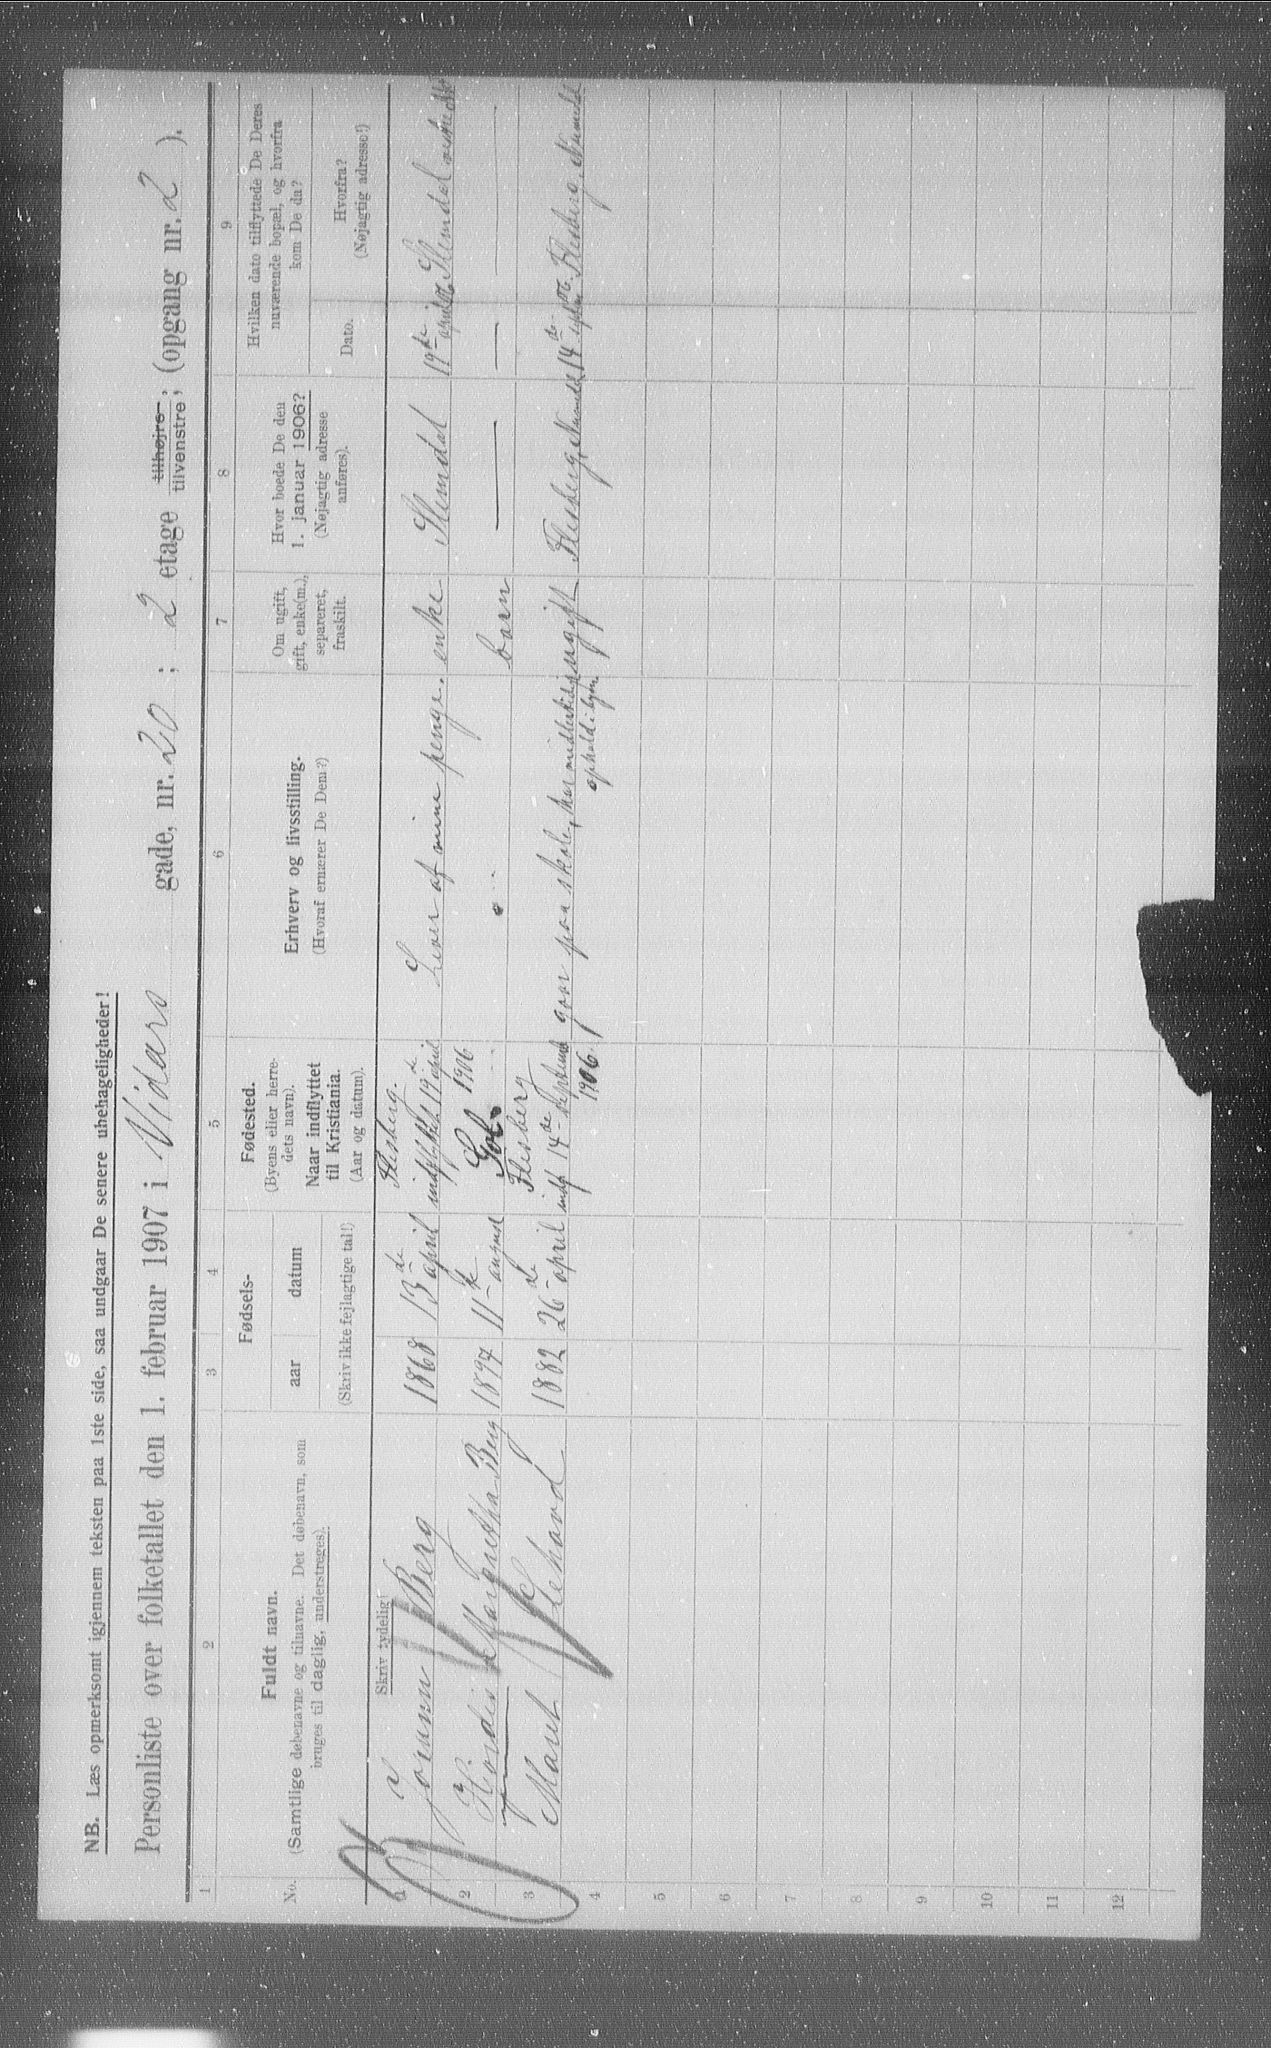 NB. Læs opmerksomt igjennem teksten paa 1ste side, saa undgaar De senere ubehageligheder!
Personliste over folketallet den 1. februar 1907 i Vidars gade, nr. 20 ; 2 etage tilhøjre, tilvenstre; (opgang nr. 2 ).
1 2 3 4 5 6 7 8 9
No.
Fuldt navn.
(Samtlige døbenavne og tilnavne. Det døbenavn, som
bruges til daglig, understreges).
Skriv tydelig!
Fødsels-
aar datum
(Skriv ikke fejlagtige tal!)
Fødested.
(Byens eller herre-
dets navn).
Naar indflyttet
til Kristiania.
(Aar og datum).
Erhverv og livsstilling.
(Hvoraf ernærer De Dem?)
Om ugift,
gift, enke(m.),
separeret,
fraskilt.
Hvor boede De den
1. januar 1906?
(Nøjagtig adresse
anføres).
Hvilken dato tilflyttede De Deres
nuværende bopæl, og hvorfra
kom De da?
Dato.
Hvorfra?
(Nøjagtig adresse!)
1 Jorunn Berg 1868 13de april Flesberg. indflyttet 19de april 1906 Lever af mine penge. enke Slemdal 19de april 06 Slemdal
2 Hjordis Margretha Berg 1897 11te august Gol barn
3 Marit Lehovd 1882 26de april Flesberg indf 14de septemb 1906. gaar paa skole, har midlertidig ophold i byen ugift Flesberg, Numedal 14de septem 06. Flesberg, Numedal
4
5
6
7
8
9
10
11
12